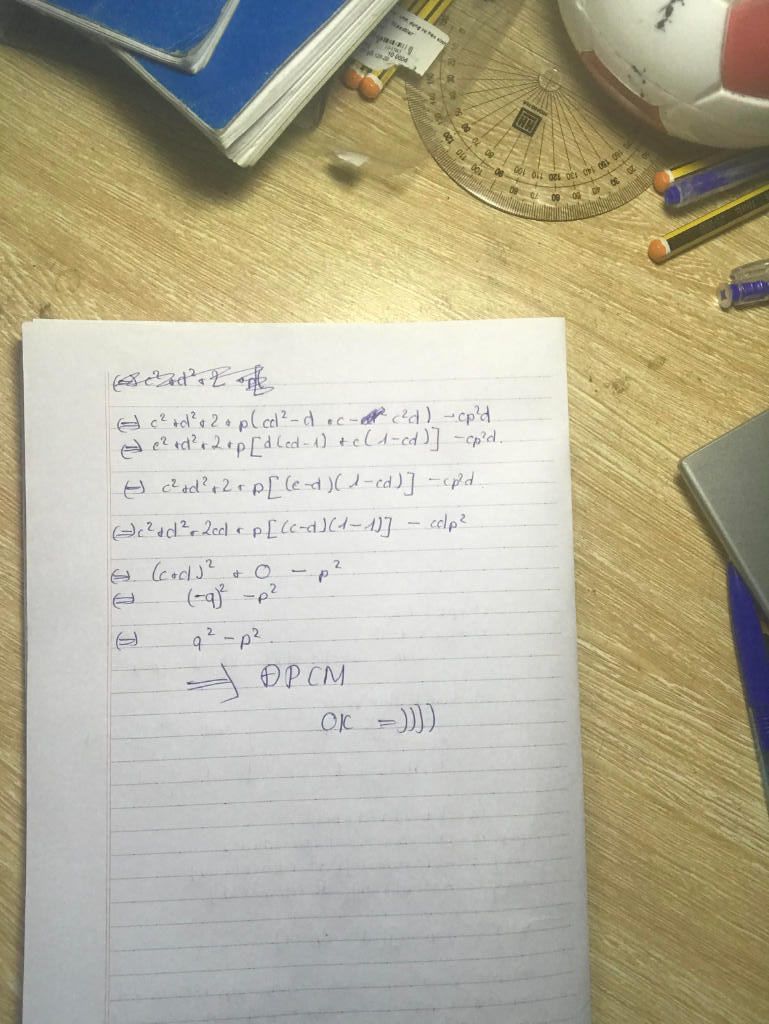 ⇔ c² + d² + 2 + p(cd² - d + c - c²d) - cp²d
⇔ c² + d² + 2 + p[d(cd-1) + c(1-cd)] - cp²d.
⇔ c² + d² + 2 + p[(c-d)(1-cd)] - cp²d
⇔ c² + d² + 2cd + p[(c-d)(1-1)] - cdp²
⇔ (c+d)² + 0 - p²
⇔ (-q)² - p²
⇔ q² - p².
⇒ ĐPCM
OK =))))